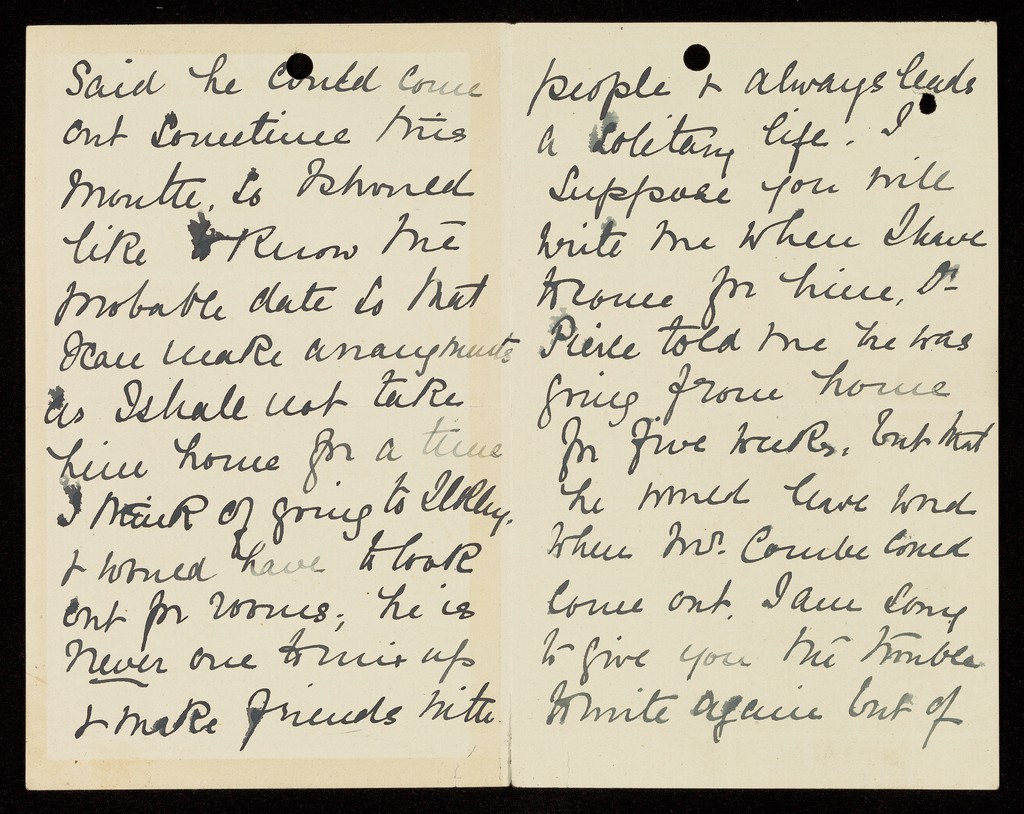 Said he could come
out sometime this
Month, so I should
like to know the
probable date so that
I can make arrangments
as I shall not take
him home for a time
I think of going to Ilkley.
& would have to look
out for rooms; he is
never one to mix up
& make friends with
people & always leads
a solitary life. I
suppose you will
write me when I have
to come for him, Dr
Pierce told me he was
going from home
for five weeks, but that
he would leave word
when Mr. Combe could
come out, I am sorry
to give you the trouble
to write again but of